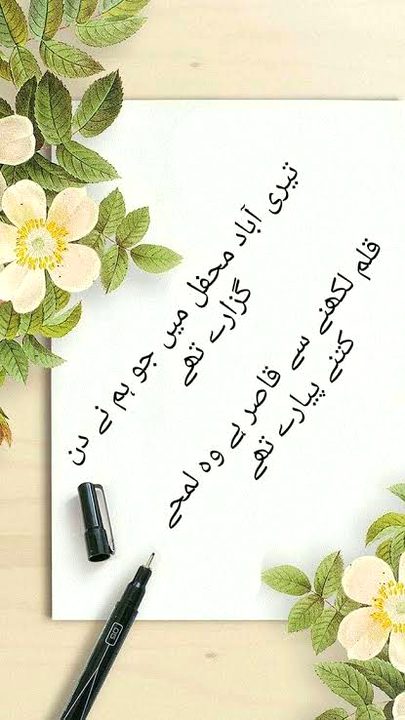 تیری آباد محفل میں جو ہم نے دن
گزارے تھے
قلم لکھنے سے قاصر ہے وہ لمحے
کتنے پیارے تھے